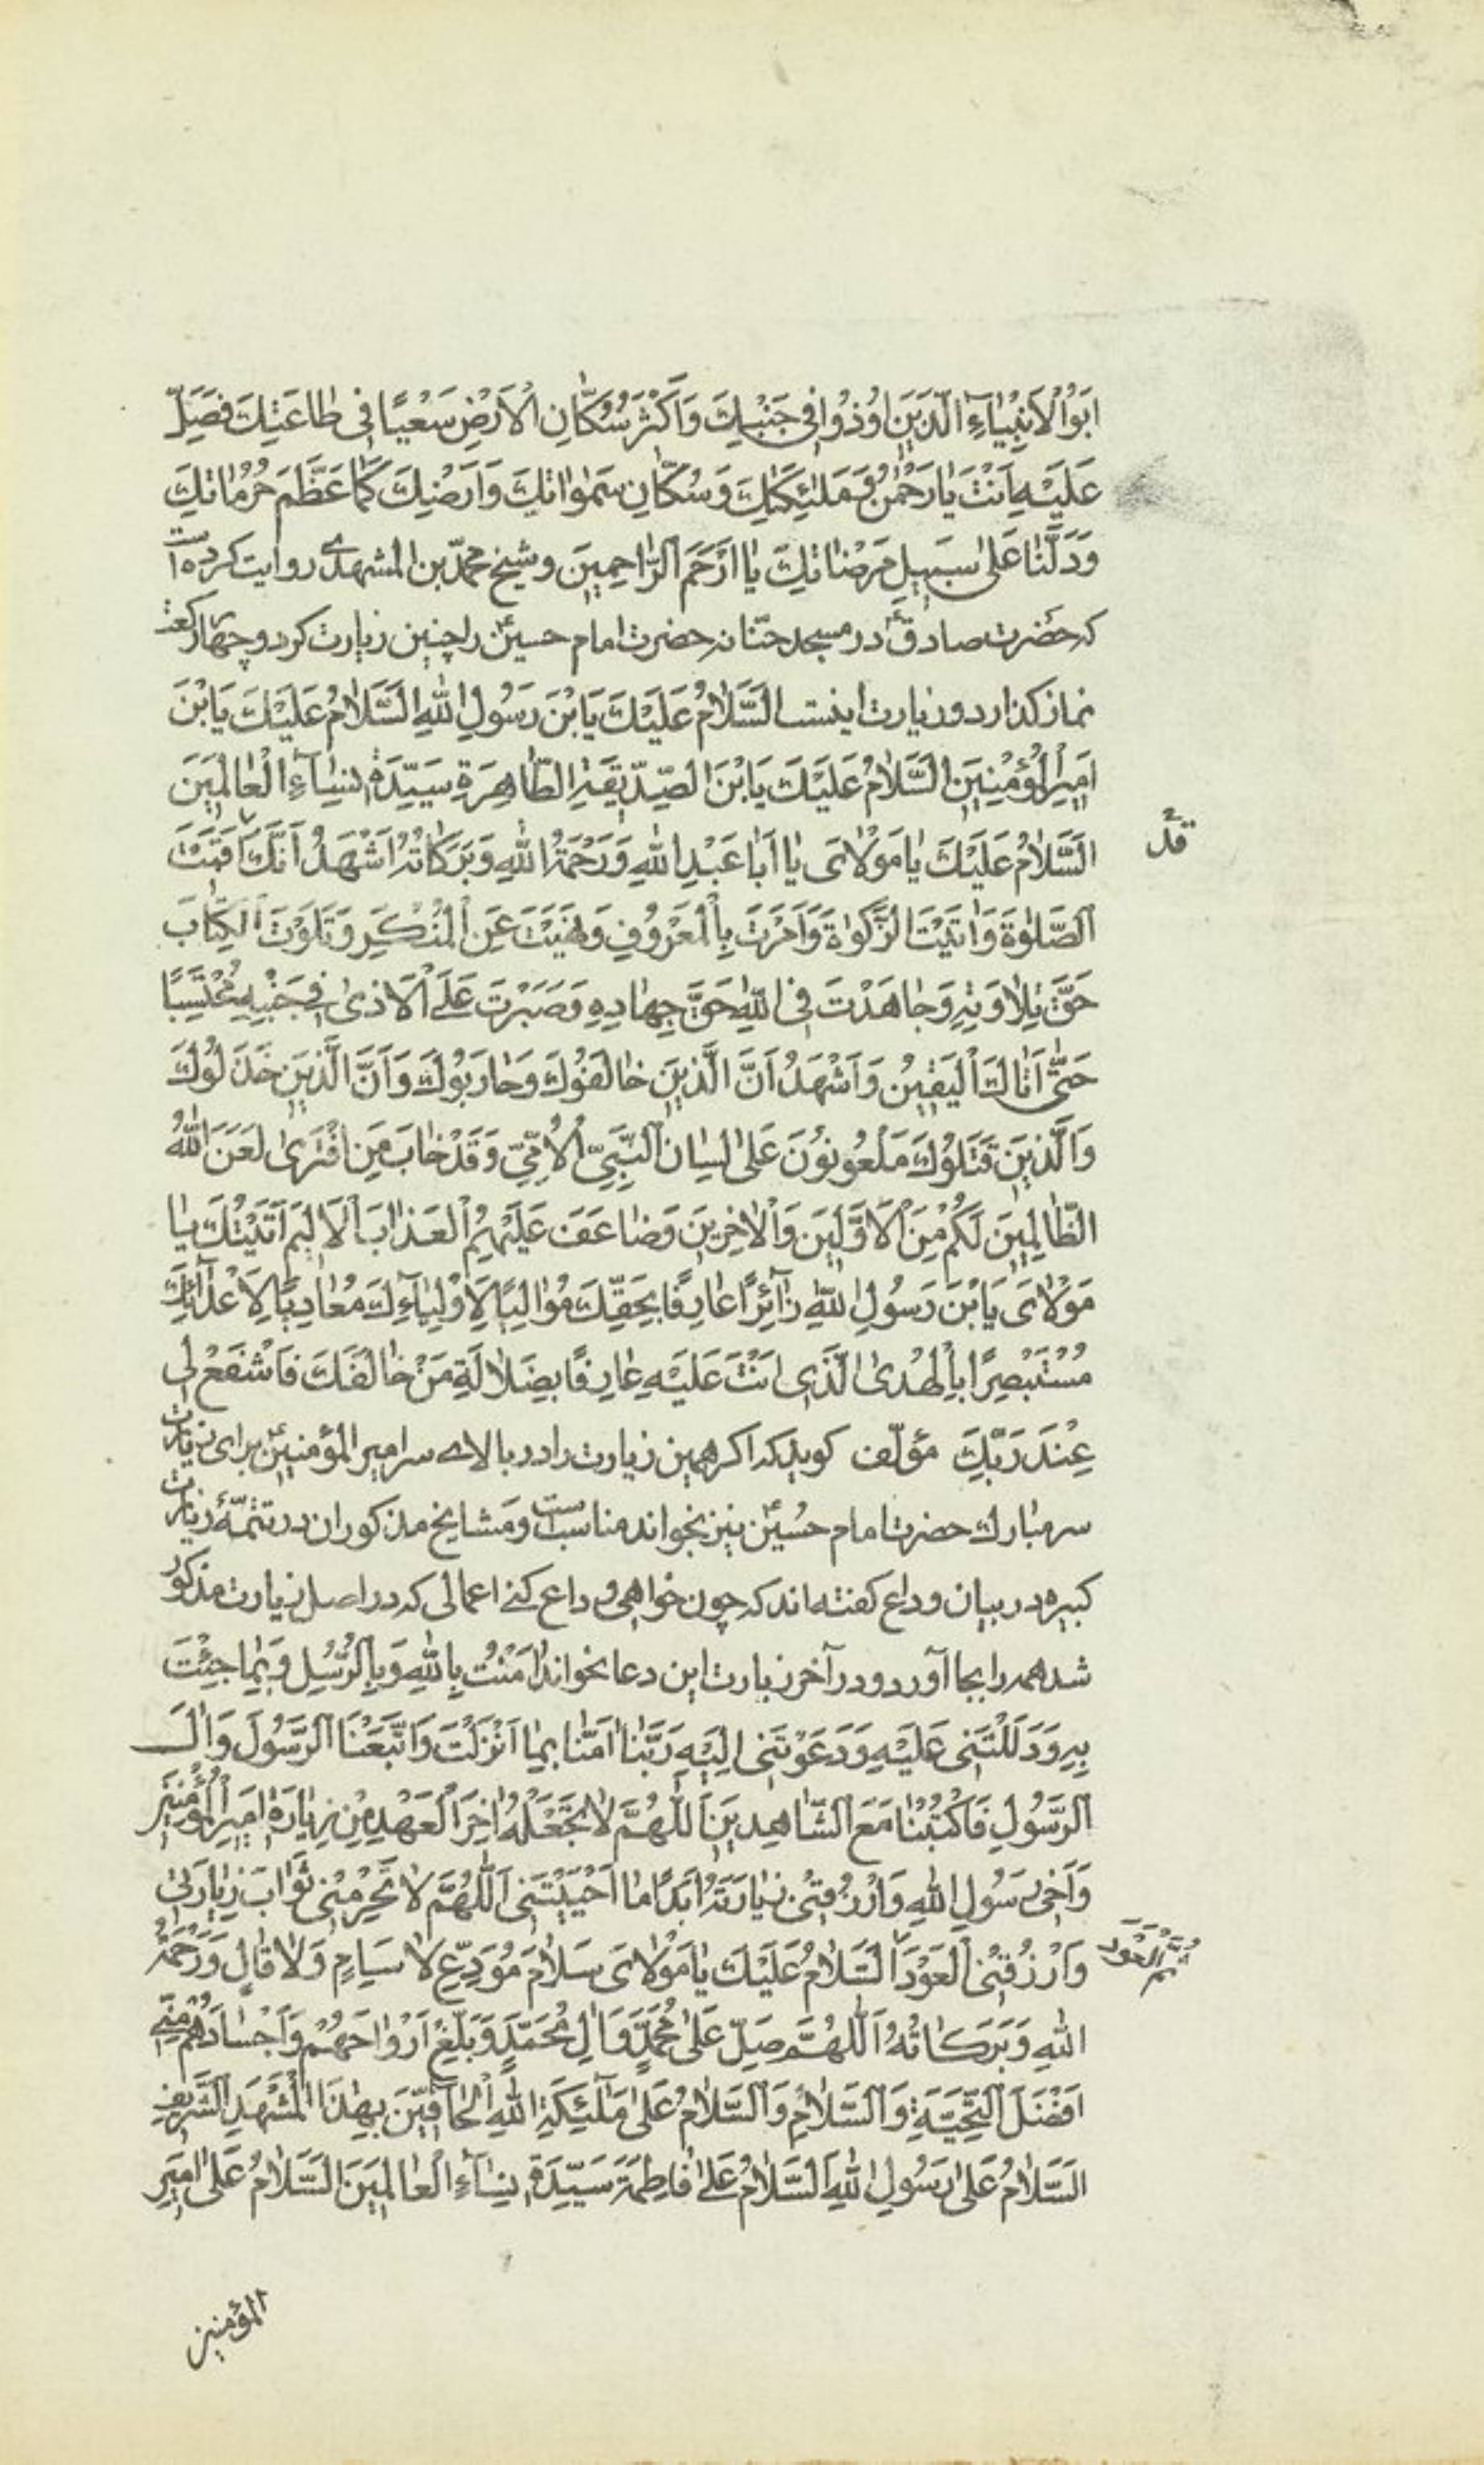 اَبَوُا الْاَنْبِيٰآءِ الَّذينَ اُوذُوا في جَنْبِكَ وَ اَكْثَرَ سُكّٰانِ الْاَرْضِ سَعْيًا في طٰاعَتِكَ فَصَلِّ
عَلَيْهِ اَنْتَ يٰا رَحْمٰنُ وَ مَلٰئِكَتِكَ وَ سُكّٰانِ سَمٰوٰاتِكَ وَ اَرْضِكَ كَمٰا عَظَّمَ حُرُمٰاتِكَ
وَ دَلَّنٰا عَلىٰ سَبيلِ مَرْضٰاتِكَ يٰا اَرْحَمَ الرّٰاحِمينَ و شيخ محمّد بن المشهدى روايت كرده است
كه حضرت صادق ع در مسجد حنّانه حضرت امام حسين ع را چنين زيارت كرد و چهار ركعت
نماز كذارد و زيارت اينست اَلسَّلٰامُ عَلَيْكَ يَا بْنَ رَسُولِ اللهِ اَلسَّلٰامُ عَلَيْكَ يَا بْنَ
اَميرِ الْمُؤْمِنينَ اَلسَّلٰامُ عَلَيْكَ يَا بْنَ الصِّدّيقَةِ الطّٰاهِرَةِ سَيِّدَةِ نِسٰآءِ الْعٰالَمينَ
اَلسَّلٰامُ عَلَيْكَ يٰا مَوْلٰاىَ يٰا اَبٰا عَبْدِ اللهِ وَ رَحْمَةُ اللهِ وَ بَرَكٰاتُهُ اَشْهَدُ اَنَّكَ اَقَمْتَ
قَدْ
الصَّلٰوةَ وَ اٰتَيْتَ الزَّكٰوةَ وَ اَمَرْتَ بِالْمَعْرُوفِ وَ نَهَيْتَ عَنِ الْمُنْكَرِ وَ تَلَوْتَ الْكِتٰابَ
حَقَّ تِلٰاوَتِهِ وَ جٰاهَدْتَ فِى اللهِ حَقَّ جِهٰادِهِ وَ صَبَرْتَ عَلَى الْاَذىٰ في جَنْبِهِ مُحْتَسِبًا
حَتّىٰ اَتٰاكَ الْيَقينُ وَ اَشْهَدُ اَنَّ الَّذينَ خٰالَفُوكَ وَ حٰارَبُوكَ وَ اَنَّ الَّذينَ خَذَلُوكَ
وَ الَّذينَ قَتَلُوكَ مَلْعُونُونَ عَلىٰ لِسٰانِ النَّبِيِّ الْاُمِّيِّ وَ قَدْ خٰابَ مَنِ افْتَرىٰ لَعَنَ اللهُ
الظّٰالِمينَ لَكُمْ مِنَ الْاَوَّلينَ وَ الْاٰخِرينَ وَ ضٰاعَفَ عَلَيْهِمُ الْعَذٰابَ الْاَليمَ اَتَيْتُكَ يٰا
مَوْلٰاىَ يَا بْنَ رَسُولِ اللهِ زٰآئِرًا عٰارِفًا بِحَقِّكَ مُوٰالِيًا لِاَوْلِيٰآءِكَ مُعٰادِيًا لِاَعْدٰآئِكَ
مُسْتَبْصِرًا بِالْهُدىٰ الَّذى اَنْتَ عَلَيْهِ عٰارِفًا بِضَلٰالَةِ مَنْ خٰالَفَكَ فَاشْفَعْ لى
عِنْدَ رَبِّكَ مؤلّف كويد كه اكر همين زيارت را در بالاى سر امير المؤمنين ع براى زيارت
سر مبارك حضرت امام حسين ع نيز بخواند مناسب است و مشايخ مذكوران در تتمّهٔ زيارت
كبيره در بيان وداع كفته اند كه چون خواهى وداع كنى اعمالى كه در اصل زيارت مذكور
شد همه را بجا آورد و در آخر زيارت اين دعا بخواند اٰمَنْتُ بِاللهِ وَ بِالرُّسُلِ وَ بِمٰا جِئْتَ
بِهِ وَ دَلَلْتَنى عَلَيْهِ وَ دَعَوْتَنى اِلَيْهِ رَبَّنٰا اٰمَنّٰا بِمٰا اَنْزَلْتَ وَ اتَّبَعْنَا الرَّسُولَ وَ اٰلَ
الرَّسُولِ فَاكْتُبْنٰا مَعَ الشّٰاهِدينَ اَللّٰهُمَّ لٰا تَجْعَلْهُ اٰخِرَ الْعَهْدِ مِنْ زِيٰارَةِ اَميرِ الْمُؤْمِنينَ
وَ اَخى رَسُولِ اللهِ وَ ارْزُقْنى زِيٰارَتَهُ اَبَدًا مٰا اَحْيَيْتَنى اَللّٰهُمَّ لٰا تَحْرِمْنى ثَوٰابَ زِيٰارَتى
وَ ارْزُقْنى الْعَوْدَ اَلسَّلٰامُ عَلَيْكَ يٰا مَوْلٰاىَ سَلٰامَ مُوَدِّعٍ لٰا سَئِمٍ وَ لٰا قٰالٍ وَ رَحْمَةُ
ثُمَّ الْعَوْدَ
اللهِ وَ بَرَكٰاتُهُ اَللّٰهُمَّ صَلِّ عَلىٰ مُحَمَّدٍ وَ اٰلِ مُحَمَّدٍ وَ بَلِّغْ اَرْوٰاحَهُمْ وَ اَجْسٰادَهُمْ مِنّى
اَفْضَلَ التَّحِيَّةِ وَ السَّلٰامِ وَ السَّلٰامُ عَلىٰ مَلٰٓئِكَةِ اللهِ الْحٰآفّينَ بِهٰذَا الْمَشْهَدِ الشَّريفِ
اَلسَّلٰامُ عَلىٰ رَسُولِ اللهِ اَلسَّلٰامُ عَلىٰ فٰاطِمَةَ سَيِّدَةِ نِسٰآءِ الْعٰالَمينَ اَلسَّلٰامُ عَلىٰ اَميرِ
المؤمنين